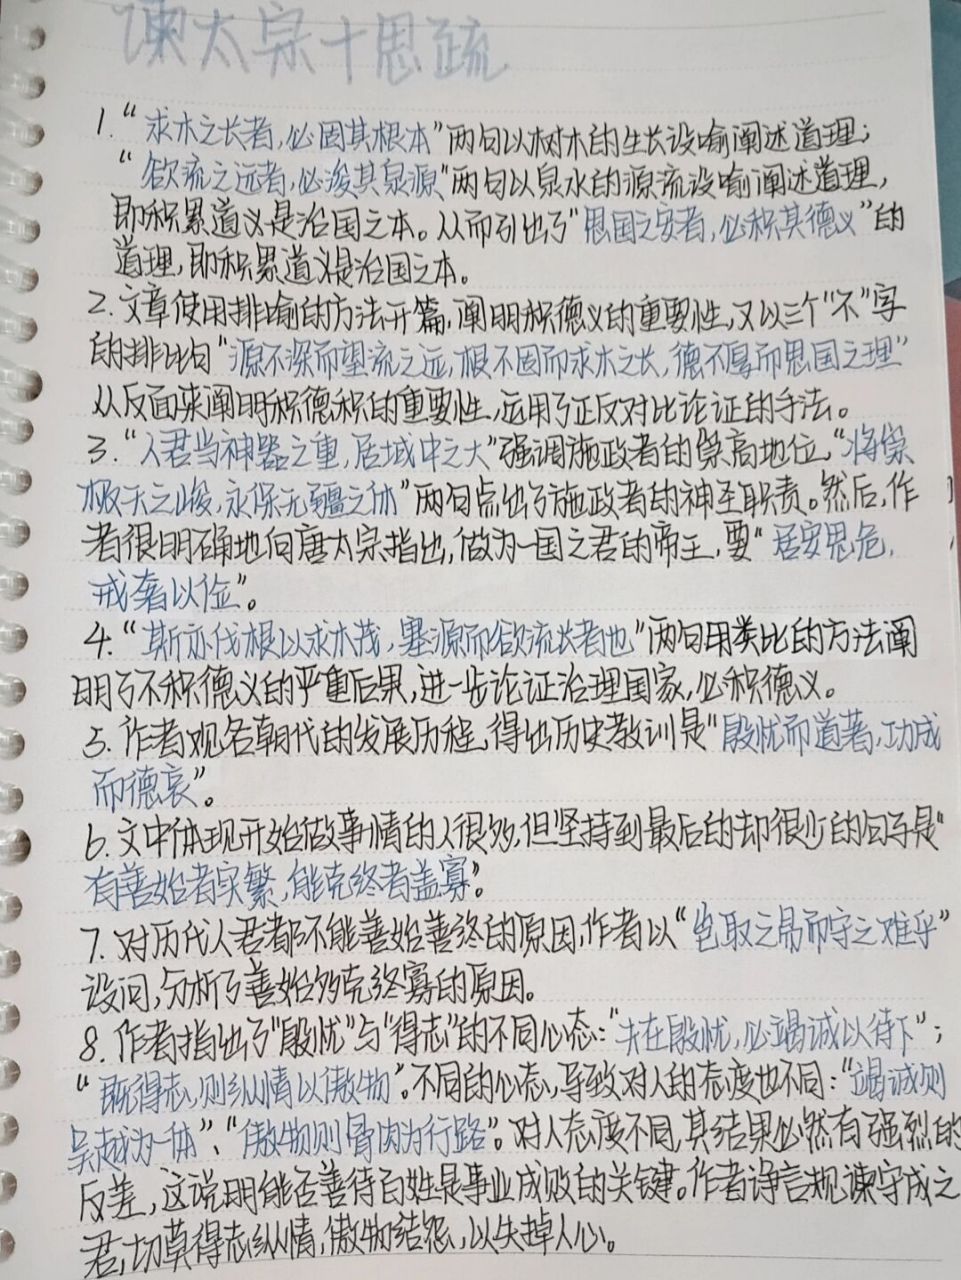 谏太宗十思疏
1.“求木之长者，必固其根本”两句以树木的生长设喻阐述道理；
“欲流之远者，必浚其泉源”两句以泉水的源流设喻阐述道理，
即积累道义是治国之本。从而引出了“思国之安者，必积其德义”的
道理，即积累道义是治国之本。
2.文章使用排喻的方法开篇，阐明积德义的重要性，又以三个“不”字
的排比句“源不深而望流之远，根不固而求木之长，德不厚而思国之理”
从反面来阐明积德积的重要性，运用了正反对比论证的手法。
3.“人君当神器之重，居域中之大”强调施政者的崇高地位，“将崇
极天之峻，永保无疆之休”两句点出了施政者的神圣职责。然后，作
者很明确地向唐太宗指出，做为一国之君的帝王，要“居安思危，
戒奢以俭”。
4.“斯亦伐根以求木茂，塞源而欲流长者也”两句用类比的方法阐
明了不积德义的严重后果，进一步论证治理国家，必积德义。
5.作者观各朝代的发展历程，得出历史教训是“殷忧而道著，功成
而德衰”。
6.文中体现开始做事情的人很多，但坚持到最后的却很少的句子是“
有善始者实繁，能克终者盖寡”。
7.对历代人君都不能善始善终的原因，作者以“岂取之易而守之难乎”
设问，分析了善始多克终寡的原因。
8.作者指出了“殷忧”与“得志”的不同心态：“夫在殷忧，必竭诚以待下”；
“既得志，则纵情以傲物”。不同的心态，导致对人的态度也不同：“竭诚则
吴越为一体”、“傲物则骨肉为行路”。对人态度不同，其结果必然有强烈的
反差，这说明能否善待百姓是事业成败的关键。作者诤言规谏守成之
君，切莫得志纵情，傲物结怨，以失掉人心。